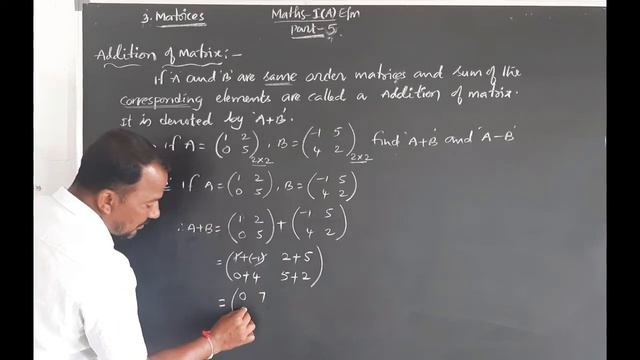 3. Matrices
Maths-I(A) E/m
Part-5
Addition of Matrix:-
If 'A' and 'B' are same order matrices and sum of the
corresponding elements are called a Addition of matrix.
It is denoted by 'A+B'.
If A = (1 2 0 5)2×2, B = (-1 5 4 2)2×2 find 'A+B' and 'A-B'
If A = (1 2 0 5), B = (-1 5 4 2)
∴ A+B = (1 2 0 5) + (-1 5 4 2)
= (1+(-1) 2+5
0+4 5+2)
= (0 7